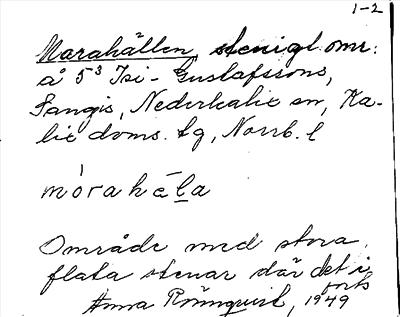 1-2
Marahällen, stenigt omr.
å 5³ Isi-Gustafssons,
Sangis, Nederkalix sn, Ka-
lix doms. tg, Norrb. l
mórahä̀la
Område med stora,
flata stenar där det i
Anna Rönnquist, 1949